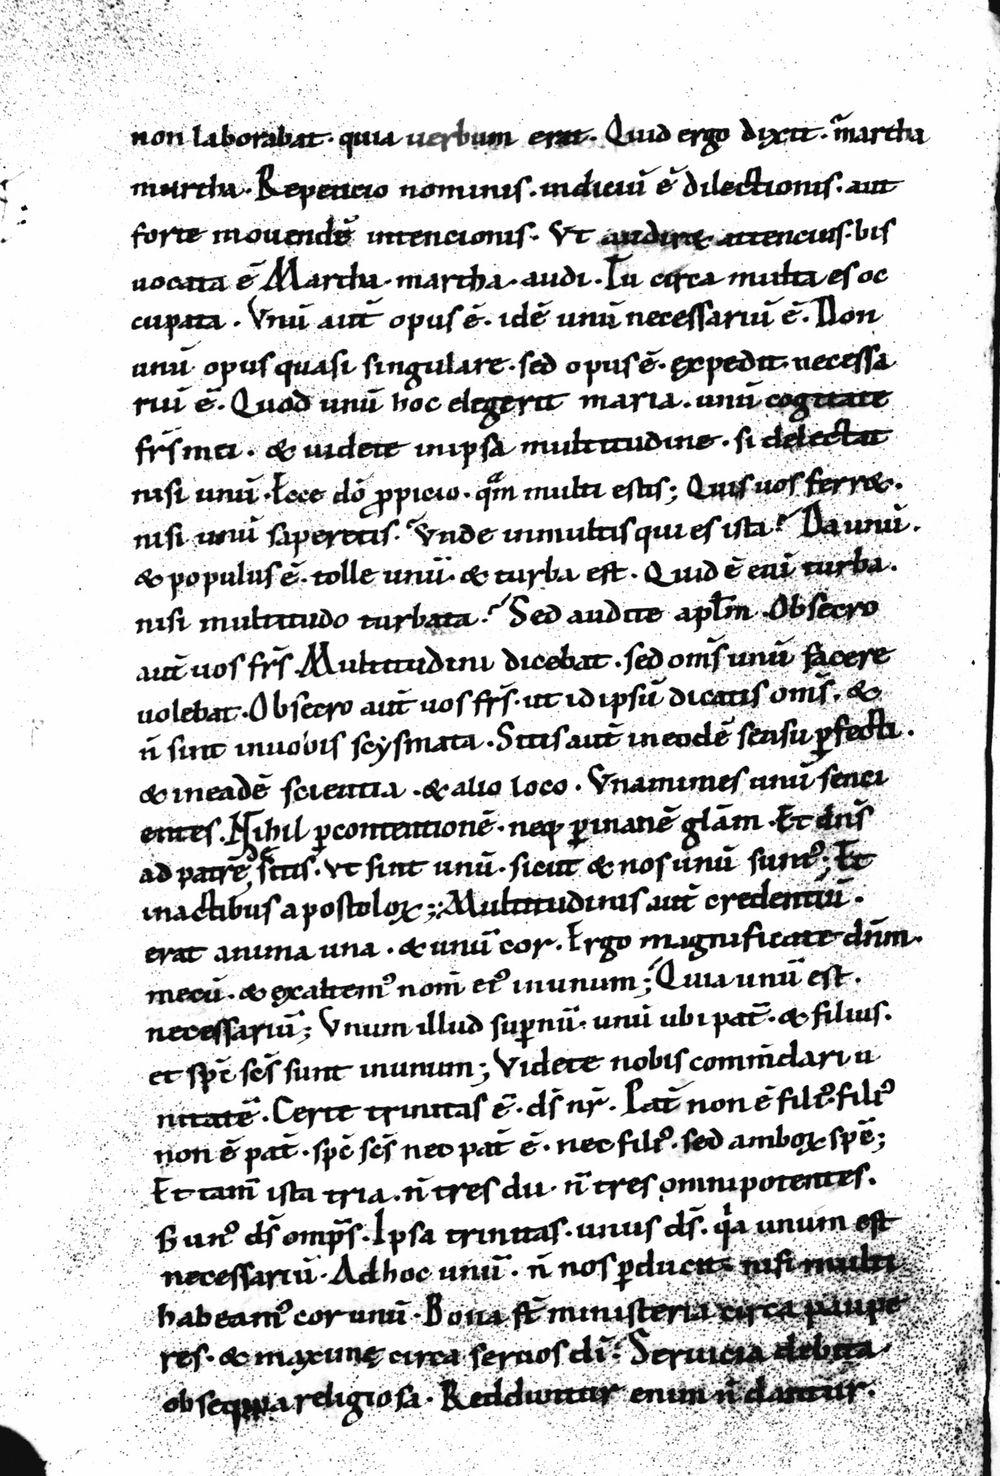 non laborabat· quia uerbum erat· Quid ergo dixit· martha
martha· Repeticio nominis· indiciū ē dilectionis· aut
forte mouendē intencionis· Vt audiret attencius· bis
uocata ē Martha· martha· audi· Tu circa multa es oc
cupata· Vnū aut̄ opus ē· idē unū necessariū ē· Non
unū opus quasi singulare· sed opus ē· expedit· necessa
riū ē· Quod unū hoc elegerit maria· unū cogitate
fr̄s mei· & uidete in ipsa multitudine· si delectat
nisi unū· Ecce dō ꝓpicio· qͣm multi estis; Quis uos ferret·
nisi unū saperetis· Vnde in multis qui es ista? Da unū·
& populus ē· tolle unū· & turba est· Quid ē enī turba·
nisi multitudo turbata? Sed audite apl̄m· Obsecro
aut̄ uos fr̄s· Multitudini dicebat· sed om̄s unū facere
uolebat· Obsecro aut̄ uos fr̄s· ut id ipsū dicatis om̄s· &
n̄ sint in uobis scysmata· Sitis aut̄ in eodē sensu ꝑfecti·
& in eadē scientia· & alio loco· Vnanimes unū senci
entes· Nihil ꝑ contentionē· neq; ꝑ inanē glām· Et dn̄s
ad patrē· Vt sint unū· sicut & nos unū sumꝰ; Et
in actibus apostoloꝝ; Multitudinis aut̄ credentiū·
erat anima una· & unū cor· Ergo magnificate dn̄m·
mecū· & exaltemꝰ nom̄ eiꝰ in unum; Quia unū est·
necessariū; Vnum illud suꝑnū· unū ubi pat̄· & filius·
et sp̄c sc̄s sunt in unum; Videte nobis comm̄dari u
nitatē· Certe trinitas ē· ds̄ nr̄· Pat̄ non ē filiꝰ· filiꝰ
non ē pat̄· sp̄c sc̄s nec pat̄ ē· nec filiꝰ· sed amboꝝ sp̄c;
Et tam̄ ista tria· n̄ tres dii· n̄ tres omnipotentes·
S; unꝰ ds̄ omp̄s· Ipsa trinitas· unus ds̄· qͥa unum est
necessariū· Ad hoc unū· n̄ nos ꝑducit· nisi multi
habeamꝰ cor unū· Bona st̄ ministeria circa paupe
res· & maxime circa seruos dī· Seruicia debita·
obsequia religiosa· Redduntur enim n̄ dantur·